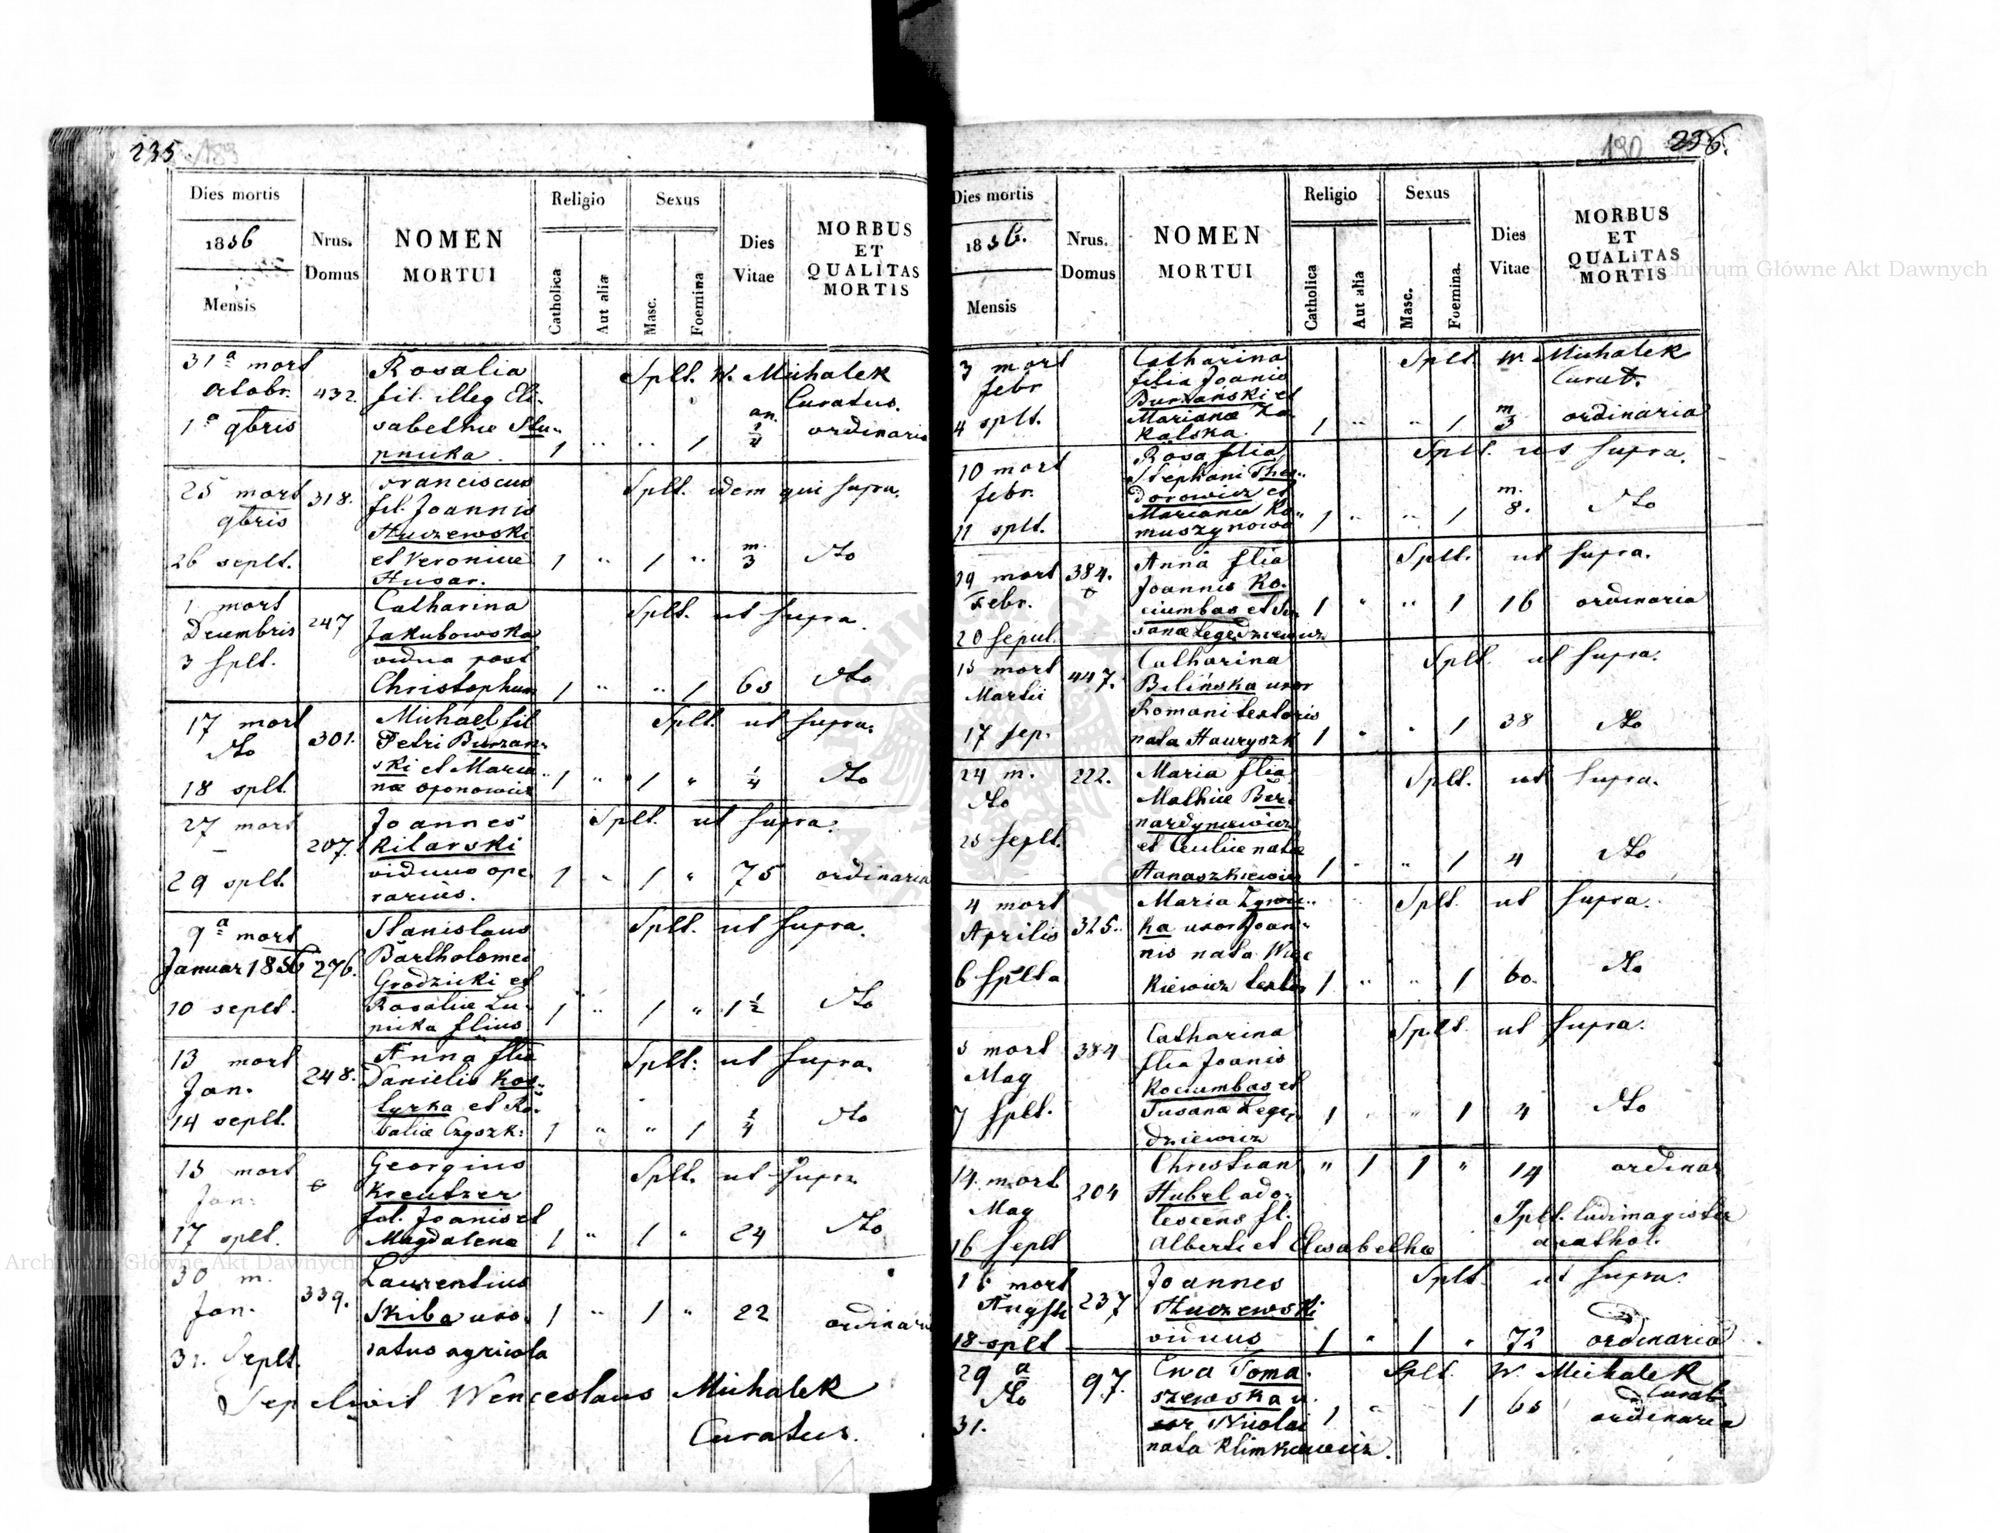 235
183
Dies mortis
1856
Mensis
Nrus.
Domus
NOMEN
MORTUI
Religio
Catholica
Aut alia
Sexus
Masc.
Foemina
Dies
Vitae
MORBUS
ET
QUALITAS
MORTIS
31ª mort
Octobr.
1ª 9bris
432.
Rosalia
fil. illeg Eli-
sabethae Stu-
pnicka.
1 " " 1
Splt. W. Michalek
Curatus.
an. 1/4
ordinaria
25 mort
9bris
26 seplt.
318.
Franciscus
fil. Joannis
Huczewski
et Veronicae
Husar.
1 " 1 "
Splt. idem qui supra.
m. 3
dto
1 mort
Decembris
3 Splt.
247
Catharina
Jakubowska
vidua post
Christophum
1 " " 1
Splt. ut supra.
65
dto
17 mort
dto
18 splt.
301.
Michael fil
Petri Burzan-
ski et Maria-
nae
1 " 1 "
Splt. ut supra.
1/4
dto
27 mort
29 splt.
207.
Joannes
Kilarski
viduus ope-
rarius.
1 " 1 "
Splt. ut supra.
75
ordinaria
9ª mort
Januar 1856
10 seplt.
276.
Stanislaus
Bartholomei
Grodzicki et
Rosaliae Lu-
nicka filius
1 " 1 "
Splt. ut supra.
1 1/2
dto
13 mort
Jan.
14 seplt.
248.
Anna filia
Danielis Kos-
tyrka et Ro-
saliae Czyszk:
1 " " 1
Splt. ut supra.
1/4
dto
15 mort
Jan:
17 splt.
Georgius
Kreutzer
fil. Joanis et
Magdalena
1 " 1 "
Splt. ut supra
24
dto
30 m.
Jan.
31. Seplt.
339.
Laurentius
Skiba uxo-
ratus agricola
1 " 1 "
22
ordinaria
Sepelivit Wenceslaus Michalek
Curatus.
190
236.
Dies mortis
1856.
Mensis
Nrus.
Domus
NOMEN
MORTUI
Religio
Catholica
Aut alia
Sexus
Masc.
Foemina.
Dies
Vitae
MORBUS
ET
QUALITAS
MORTIS
3 mort
febr
4 splt.
Catharina
filia Joanis
Burzański et
Mariana Za
kalska.
1 " " 1
Splt. W. Michalek
Curat.
m 3
ordinaria
10 mort
febr.
11 splt.
Rosa filia
Stephani Theo-
dorowicz et
Mariana Ro-
muszynowa
1 " " 1
Splt. ut supra.
m. 8.
dto
19 mort
Febr.
20 Sepul.
384.
Anna filia
Joannis Ko-
ciumbas et Su-
sanae Legędziewicz
1 " " 1
Splt. ut supra.
16
ordinaria
15 mort
Martii
17 sep.
447.
Catharina
Bilińska uxor
Romani textoris
nata Hauryszk
1 " " 1
Splt. ut supra.
38
dto
24 m.
dto
25 seplt.
222.
Maria filia
Mathiae Ber-
nardyniewicz
et Ceciliae natae
Hanaszkiewicz
1 " " 1
Splt. ut supra.
4
dto
4 mort
Aprilis
6 Splta
325.
Maria
ka uxor Joan-
nis nata
kiewicz
1 " " 1
Splt. ut supra.
60.
dto
5 mort
Mag
7 splt.
384
Catharina
filia Joanis
Kociumbas et
Susana Legę-
dziewicz
1 " " 1
Splt. ut supra.
4
dto
14 mort
Mag
16 Seplt
204
Christian
Hubel ado-
lescens fil.
Alberti et Elisabetha
" 1 1 "
14
ordinar
Splt. ludimagister
acathol.
16 mort
Augsti
18 splt
237
Joannes
Huczewski
viduus
1 " 1 "
Splt. ut supra.
72
ordinaria
29 a
dto
31.
97.
Ewa Toma-
szewska u-
xor Nicolai
nata Klimkiewicz.
1 " 1
Splt. W. Michalek
Curat.
65
ordinaria
Archiwum Główne Akt Dawnych
Archiwum Główne Akt Dawnych